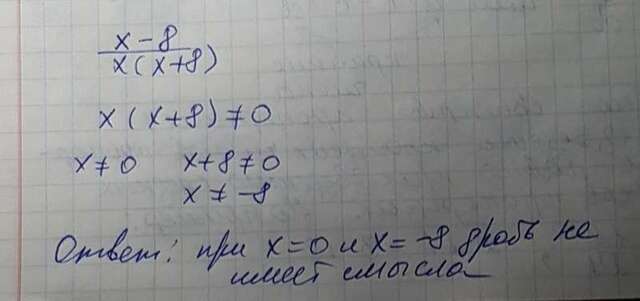 x-8
x(x+8)
x(x+8)≠0
x≠0 x+8≠0
x≠-8
Ответ: при x=0 и x=-8 дробь не
имеет смысла